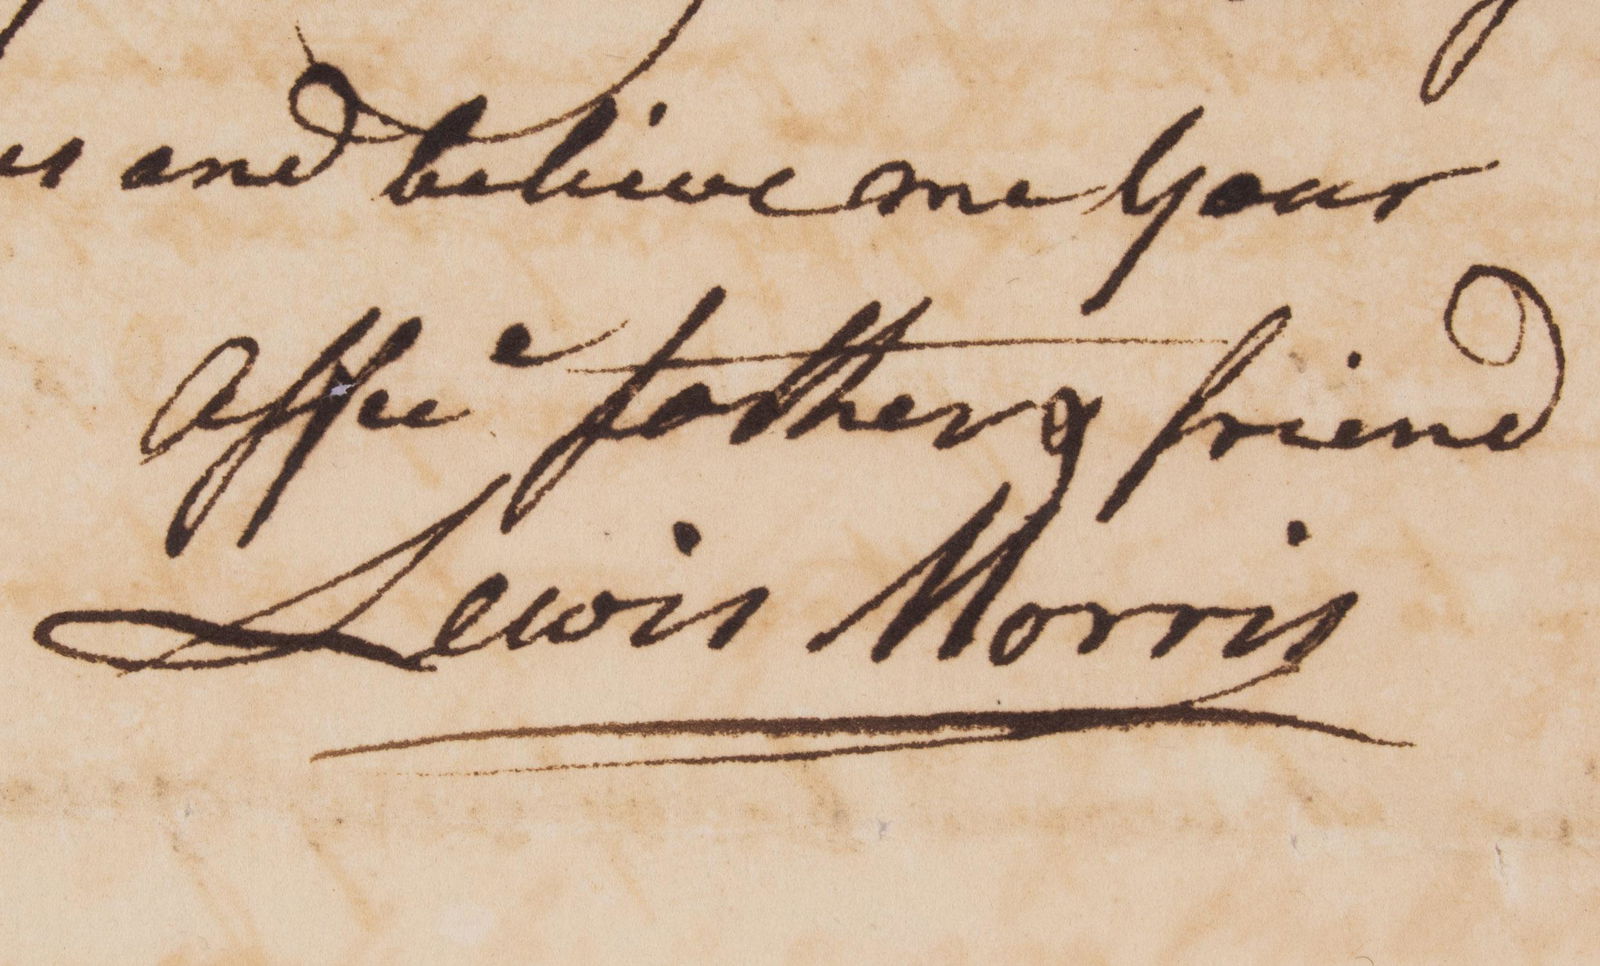 and believe me your
Affec^e father & friend
Lewis Morris